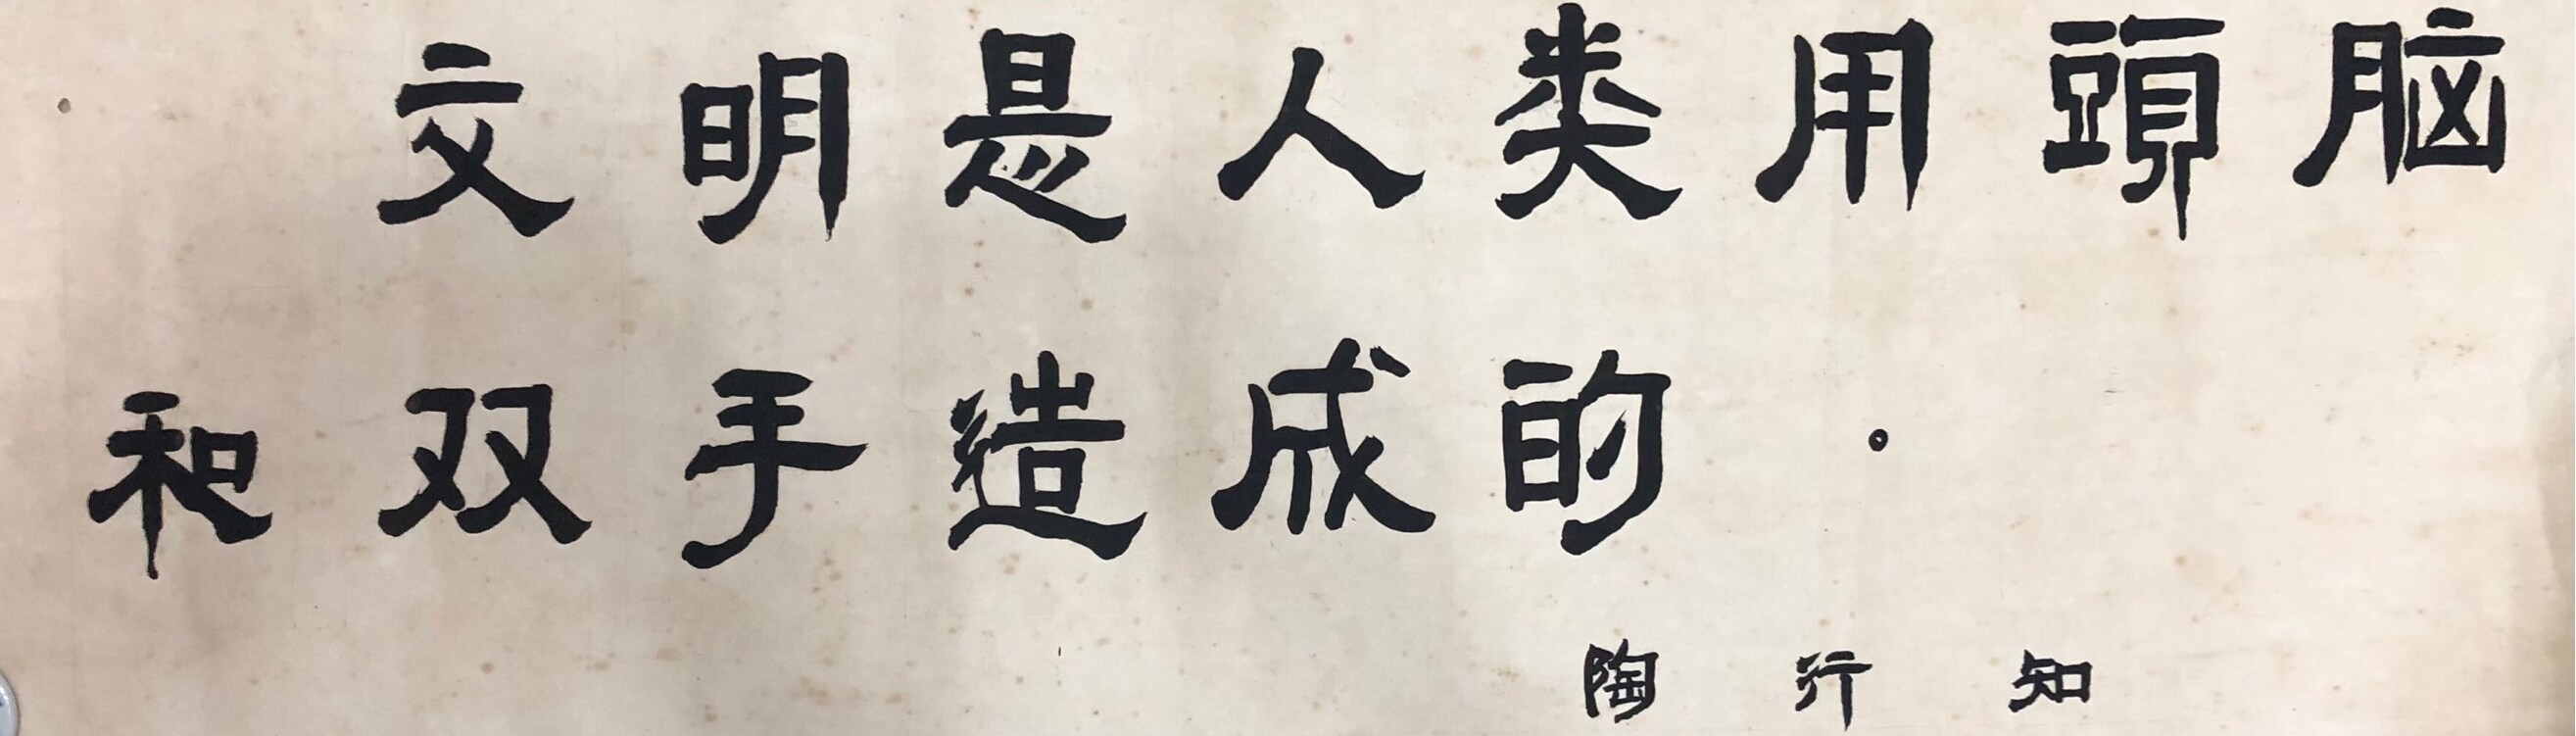 文明是人类用頭脑
和双手造成的。
陶行知